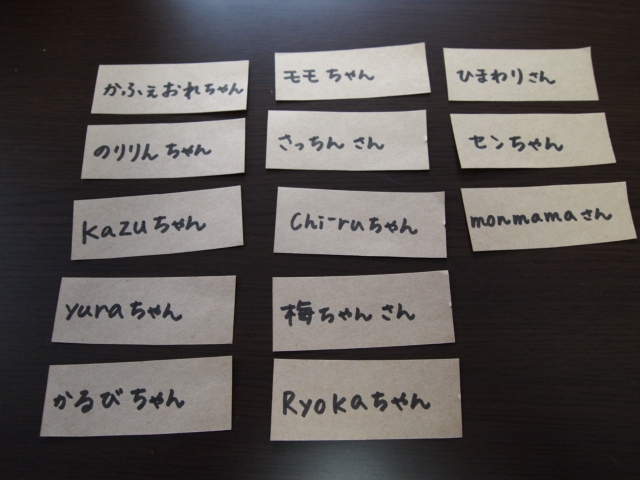 かふぇおれちゃん
のりりんちゃん
kazuちゃん
yuraちゃん
かるびちゃん
モモちゃん
さっちんさん
Chi-ruちゃん
梅ちゃんさん
Ryokaちゃん
ひまわりさん
センちゃん
monmamaさん